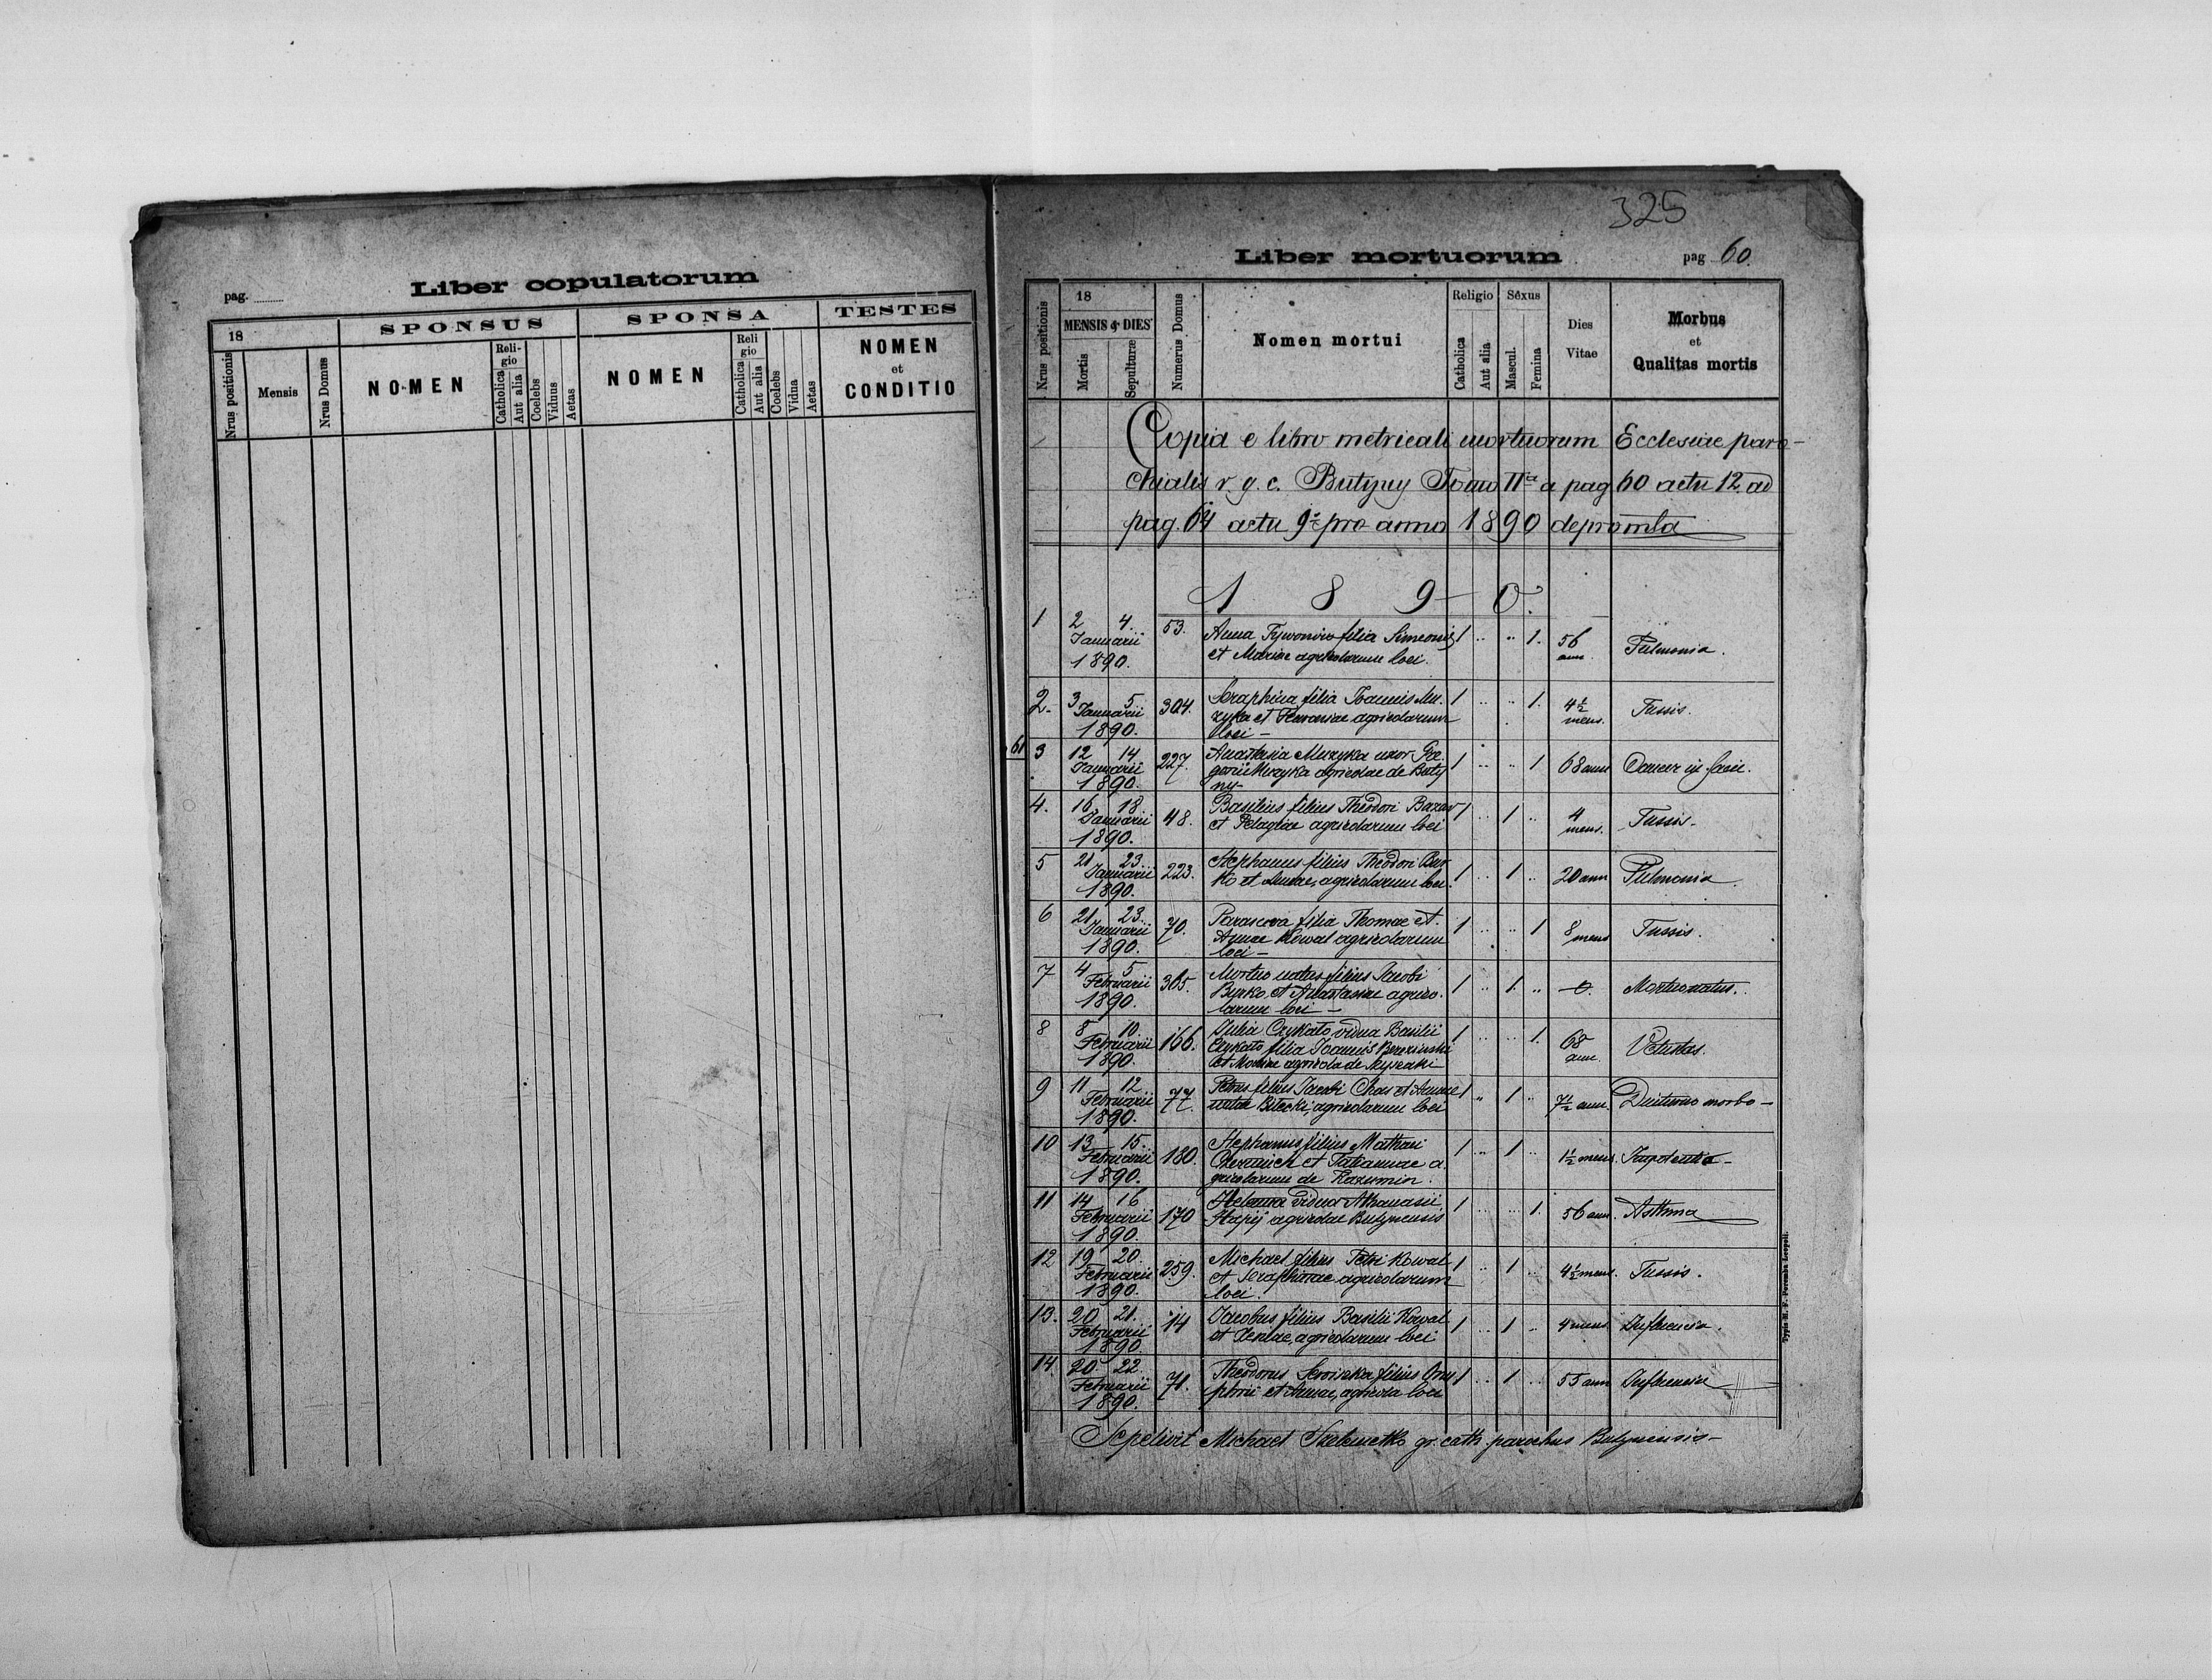 Liber copulatorum
pag.
18
SPONSUS
SPONSA
TESTES
Nrus positionis
Mensis
Nrus Domus
NOMEN
Religio
Catholica
Aut alia
Coelebs
Viduus
Aetas
NOMEN
Religio
Catholica
Aut alia
Coelebs
Vidua
Aetas
NOMEN
et
CONDITIO
325
Liber mortuorum
pag 60.
Nrus positionis
18
MENSIS & DIES
Mortis
Sepulturæ
Numerus Domus
Nomen mortui
Religio
Catholica
Aut alia
Sexus
Mascul.
Femina
Dies
Vitae
Morbus
et
Qualitas mortis
Copia e libro metricali mortuorum Ecclesiae paro-
chialis r. g. c. Butyny Tomo II a pag 60 actu 12 ad
pag. 64 actu 9 pro anno 1890 depromta
1890.
1 2 4. 53. Anna filia Simeonis 1 .. .. 1. 56 Pulmonia.
Januarii et Mariae agricolarum loci. ann.
1890.
2. 3 5 304. Seraphina filia Joannis Mu- 1 .. .. 1. 4½ Tussis.
Januarii zyka et agricolarum mens.
1890. loci -
61
3 12 14 227. Anastasia Muzyka uxor Gre- 1 .. .. 1 68 ann Cancer in facie.
Januarii gorii Muzyka agricolae de Buty
1890. ny-
4. 16 18 48. Basilius filius Theodori Bazar 1 .. 1 .. 4 Tussis-
Januarii et Pelagiae agricolarum loci mens.
1890.
5 21 23 223. Stephanus filius Theodori Bur- 1 .. 1 .. 20 ann Pulmonia.
Januarii ko et Annae, agricolarum loci.
1890.
6 21 23. 70. Parasceva filia Thomae et 1 .. .. 1 8 Tussis.
Januarii Annae Kowal agricolarum mens
1890. loci -
7 4 5 305. Mortuo natus filius Jacobi 1 .. 1. .. 0. Mortuonatus.
Februarii Burko et Anastasiae agrico-
1890. larum loci -
8 8 10. 166. Julia vidua Basilii 1 .. .. 1. 68 Vetustas.
Februarii filia Joannis ann.
1890. et Mariae agricola de
9 11 12 77. Petrus filius Jacobi et Annae 1 .. 1 .. 7½ ann. Diuturno morbo -
Februarii natae Bilecki, agricolarum loci
1890.
10 13 15. 180. Stephanus filius Mathaei 1 .. 1 .. 1½ mens. Impotentia-
Februarii et Tatiannae a-
1890. gricolarum de Kazumin.
11 14 16 170 vidua Athanasii 1 .. .. 1. 56 ann. Asthma
Februarii agricolae Butynensis
1890.
12 19 20. 259. Michael filius Petri Kowal 1 .. 1 .. 4½ mens. Tussis.
Februarii et Seraphinae agricolarum
1890. loci.
13. 20 21. 14 Jacobus filius Basilii Kowal 1 .. 1 .. 4 mens Influenzia.
Februarii et Xeniae, agricolarum loci
1890.
14. 20 22. 71. Theodorus filius Onu 1 .. 1 .. 55 ann Influenzia
Februarii phrii et Annae, agricola loci
1890.
Sepelivit Michael gr. cath. parochus Butynensis-